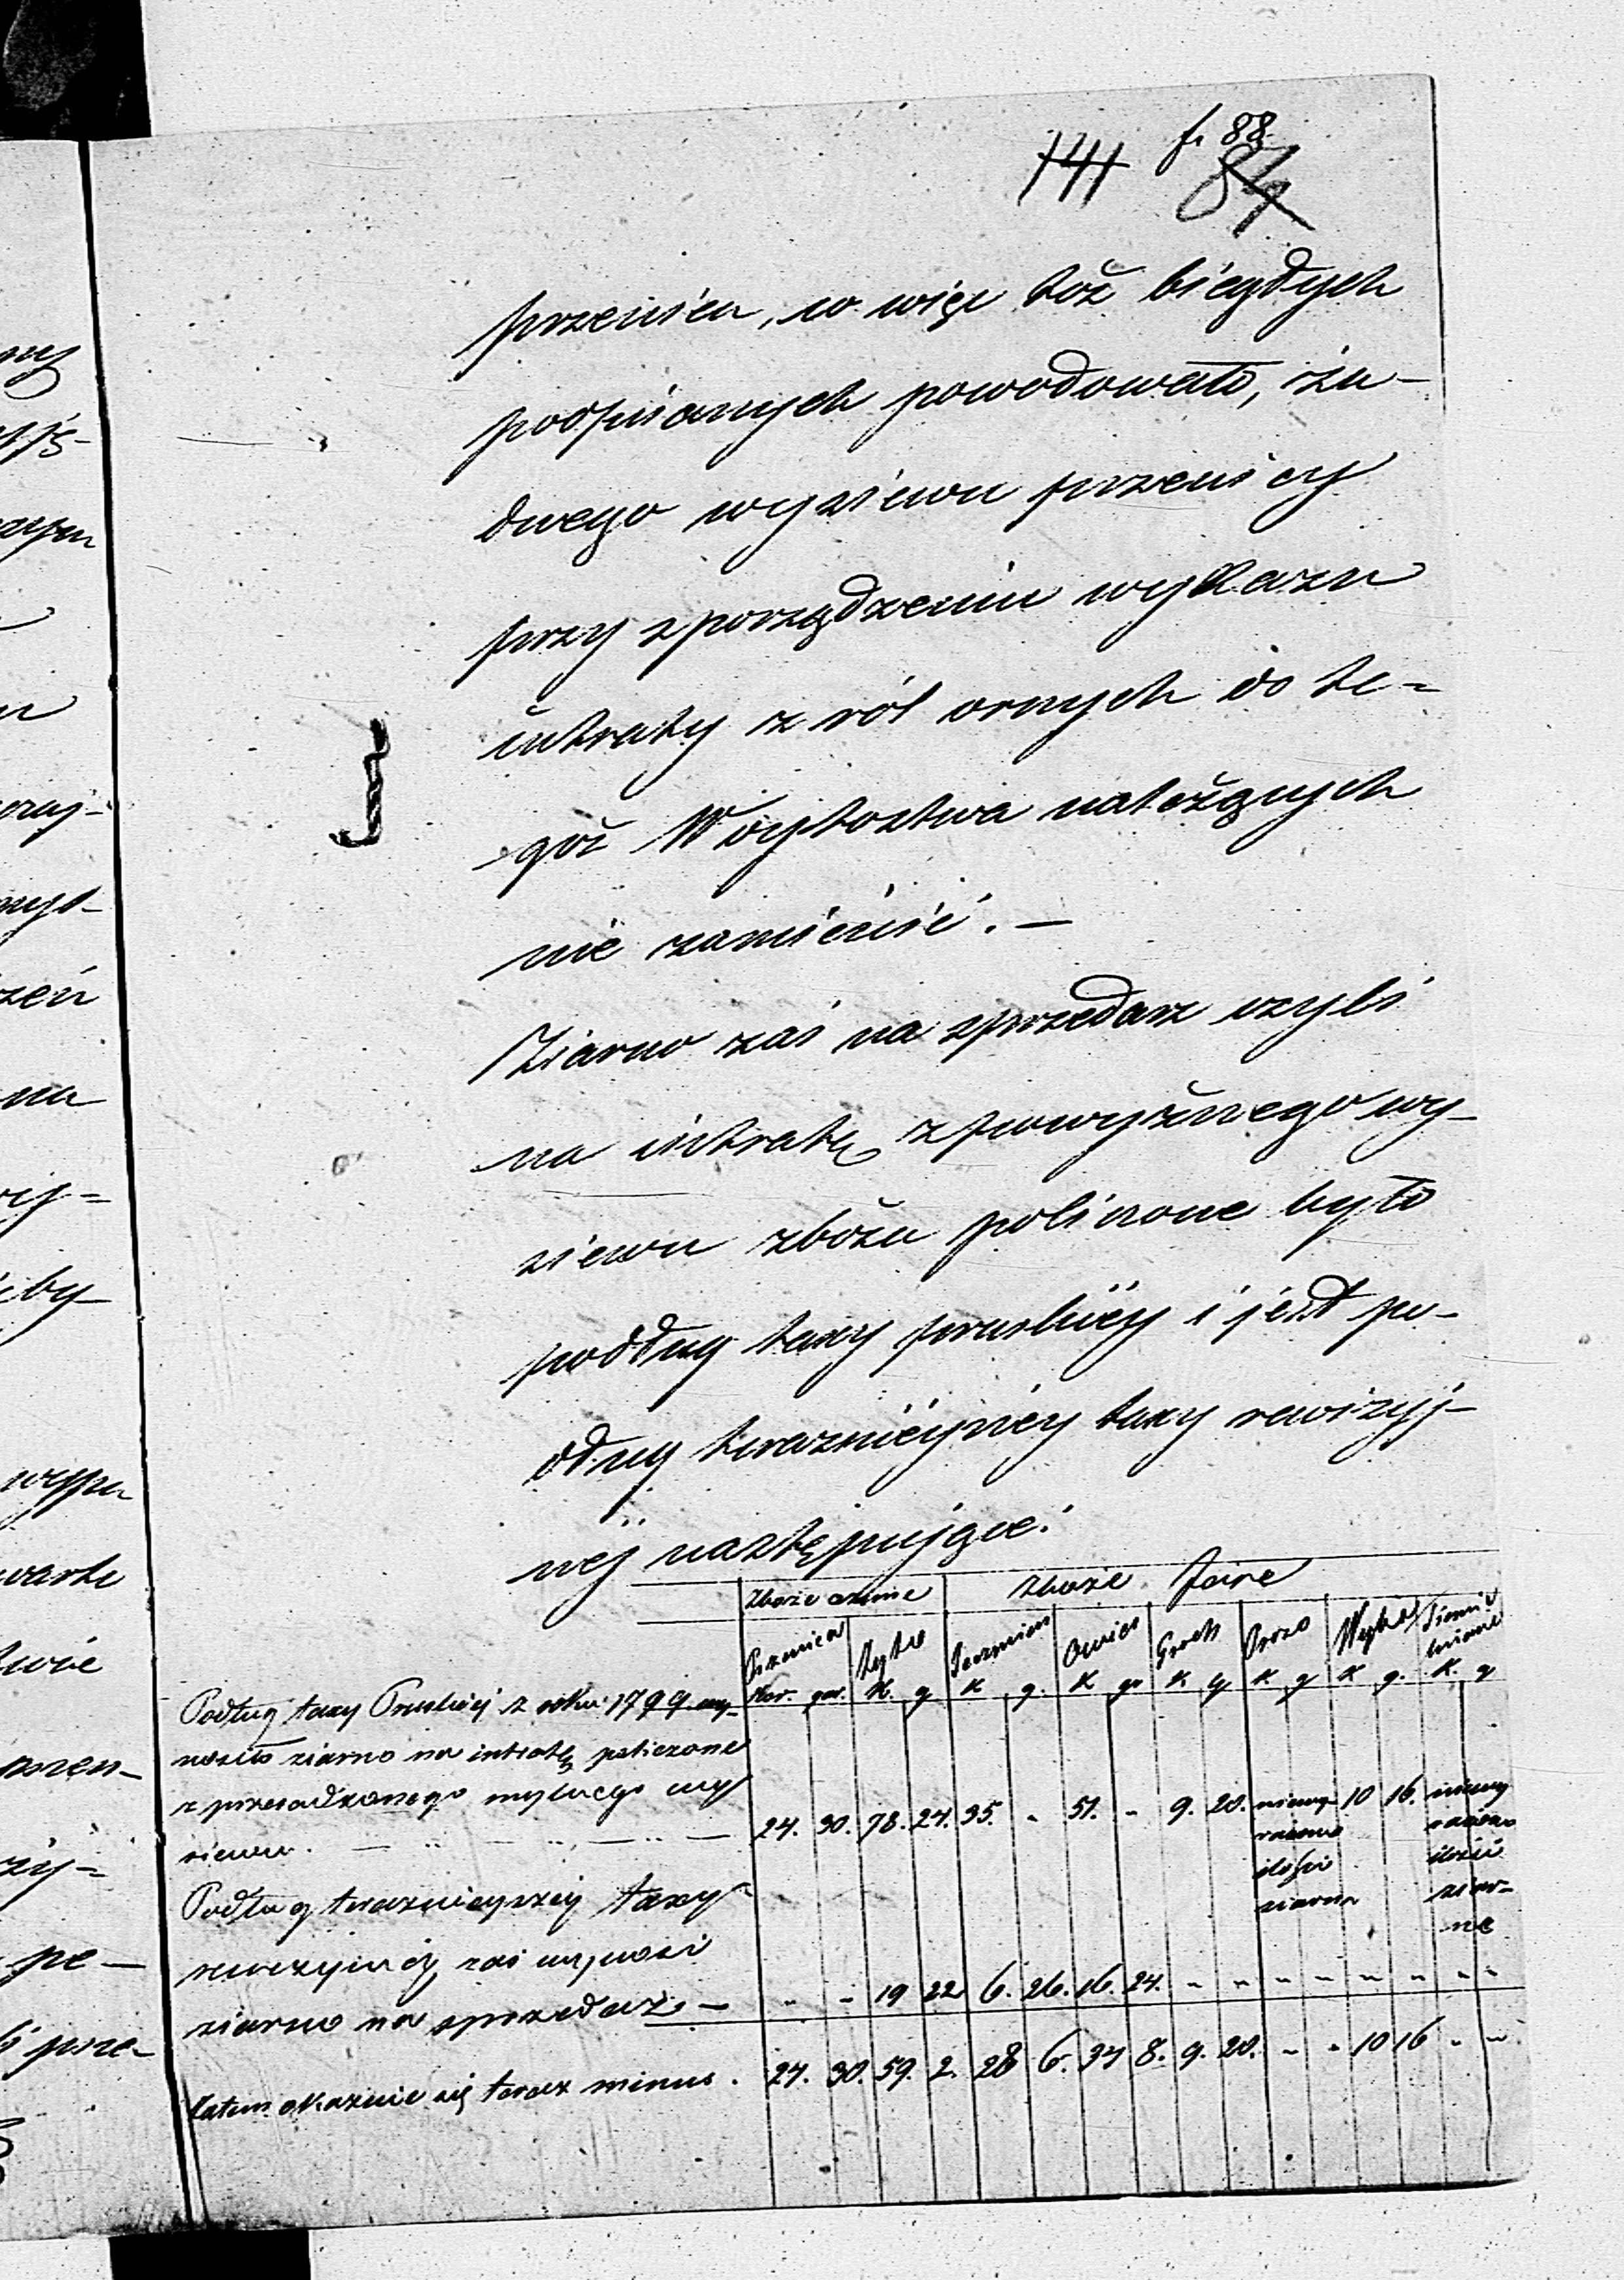 141 f. 88
84
pszenicą, co więc też biegłych
podpisanych powodowało, ża-
dnego wysiewu pszenicy
przy sporządzeniu wykazu
intraty z ról ornych do te-
goż Wójtostwa należących
nie zamieścić. —
Ziarno zaś na sprzedarz czyli
na intratę z powyższego wy-
siewu zboża policzone było
podług taxy pruskiéy i jest po-
dług teraznieyszéy taxy rewizyj-
nej następujące:
Zboże ozime zboże Jare
Pszenica Żyto Jęczmień Owies Groch Proso Wyka Siemie lniane
Kor. gar. K. g K g. K gr K g K g K g. K. g
Podług taxy Pruskiej z roku 1799 wy-
nosiło ziarno na intratę policzone
z przesadzonego mylnego wy
siewu. — 24. 30. 78. 24. 35. - 51. - 9. 20. niewy- 10 16. niewy
rażono rażono
ilości ilości
ziarna ziar-
na
Podług teraznieyszéy taxy
rewizyjnéy zaś wynosi
ziarno na sprzedaż. — - - 19 22 6. 26. 16. 24. - - - - - - - -
Zatem okazuie się teraz minus. 24. 30. 59. 2. 28 6. 34 8. 9. 20. - - 10 16 - -